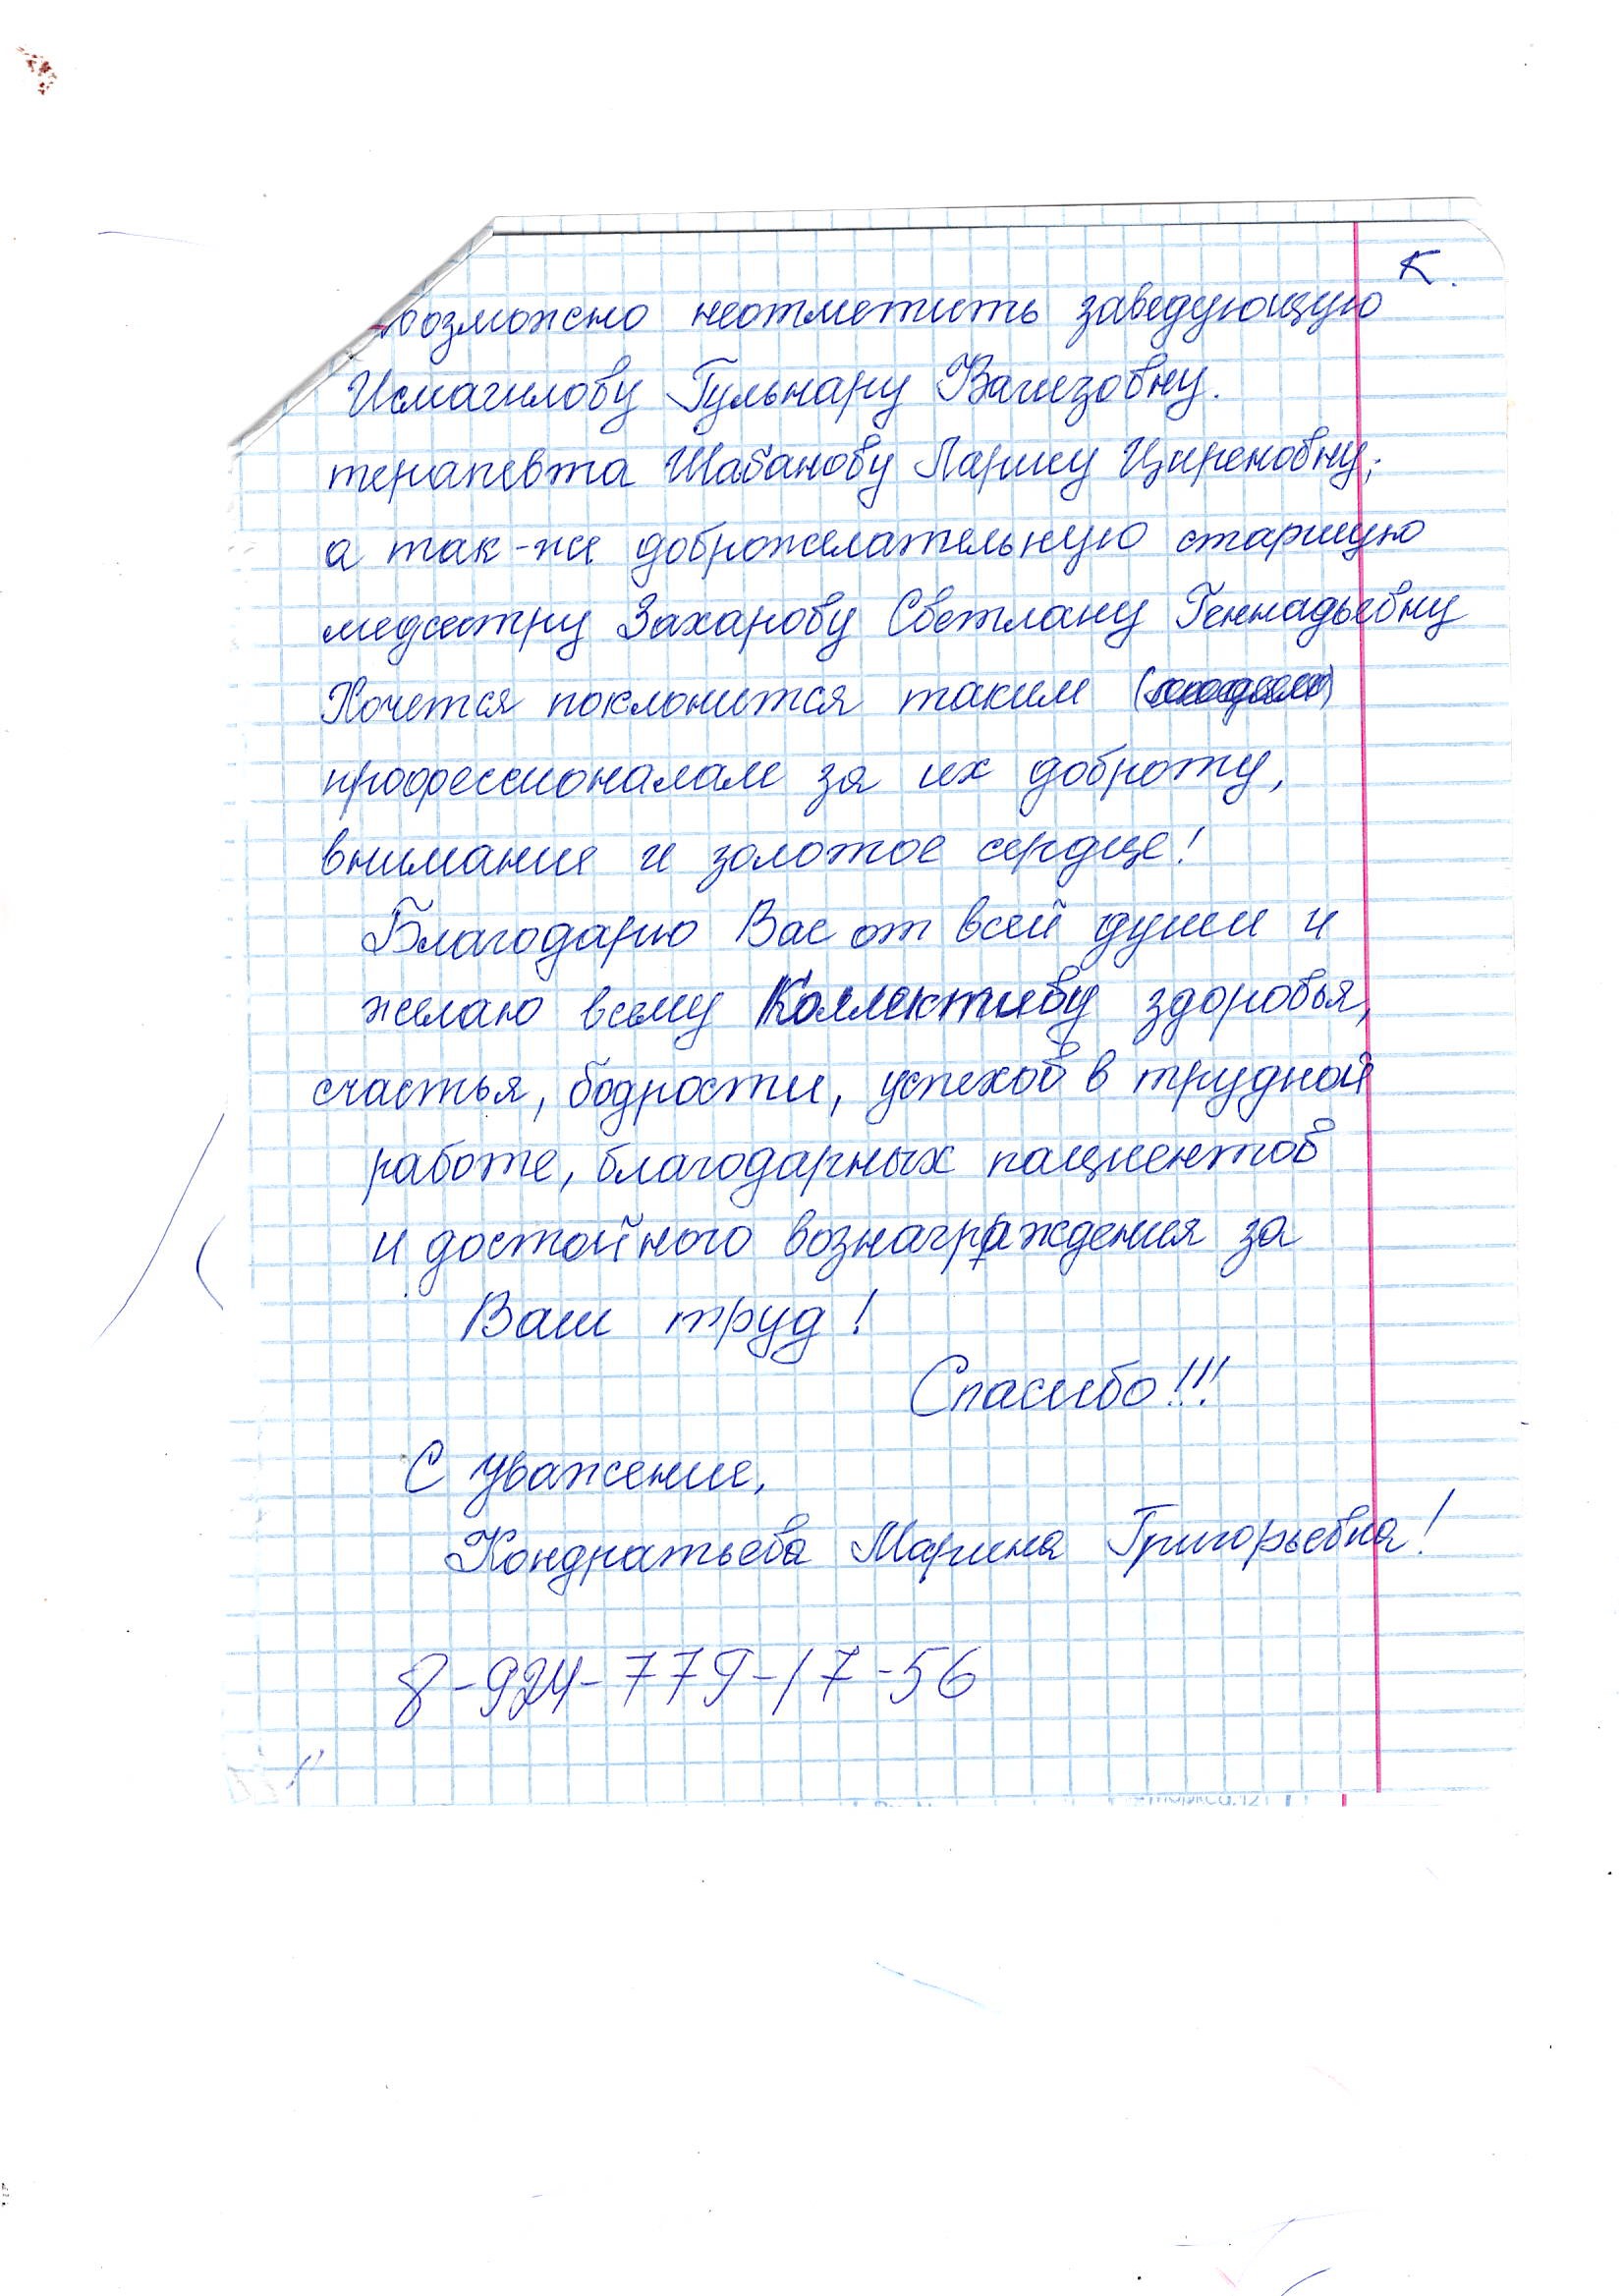 К.
возможно неотметить заведующую
Исмагилову Гульнару Вагизовну.
терапевта Шабанову Ларису Цыреновну;
а так-же доброжелательную старшую
медсетру Захарову Светлану Геннадьевну
Хочется поклонится таким
профессионалам за их доброту,
внимание и золотое сердце!
Благодарю Вас от всей души и
желаю всему Коллективу здоровья,
счастья, бодрости, успехов в трудной
работе, благодарных пациентов
и достойного вознаграждения за
Ваш труд!
Спасибо!!!
С уважение,
Кондратьева Марина Григорьевна!
8-924-779-17-56